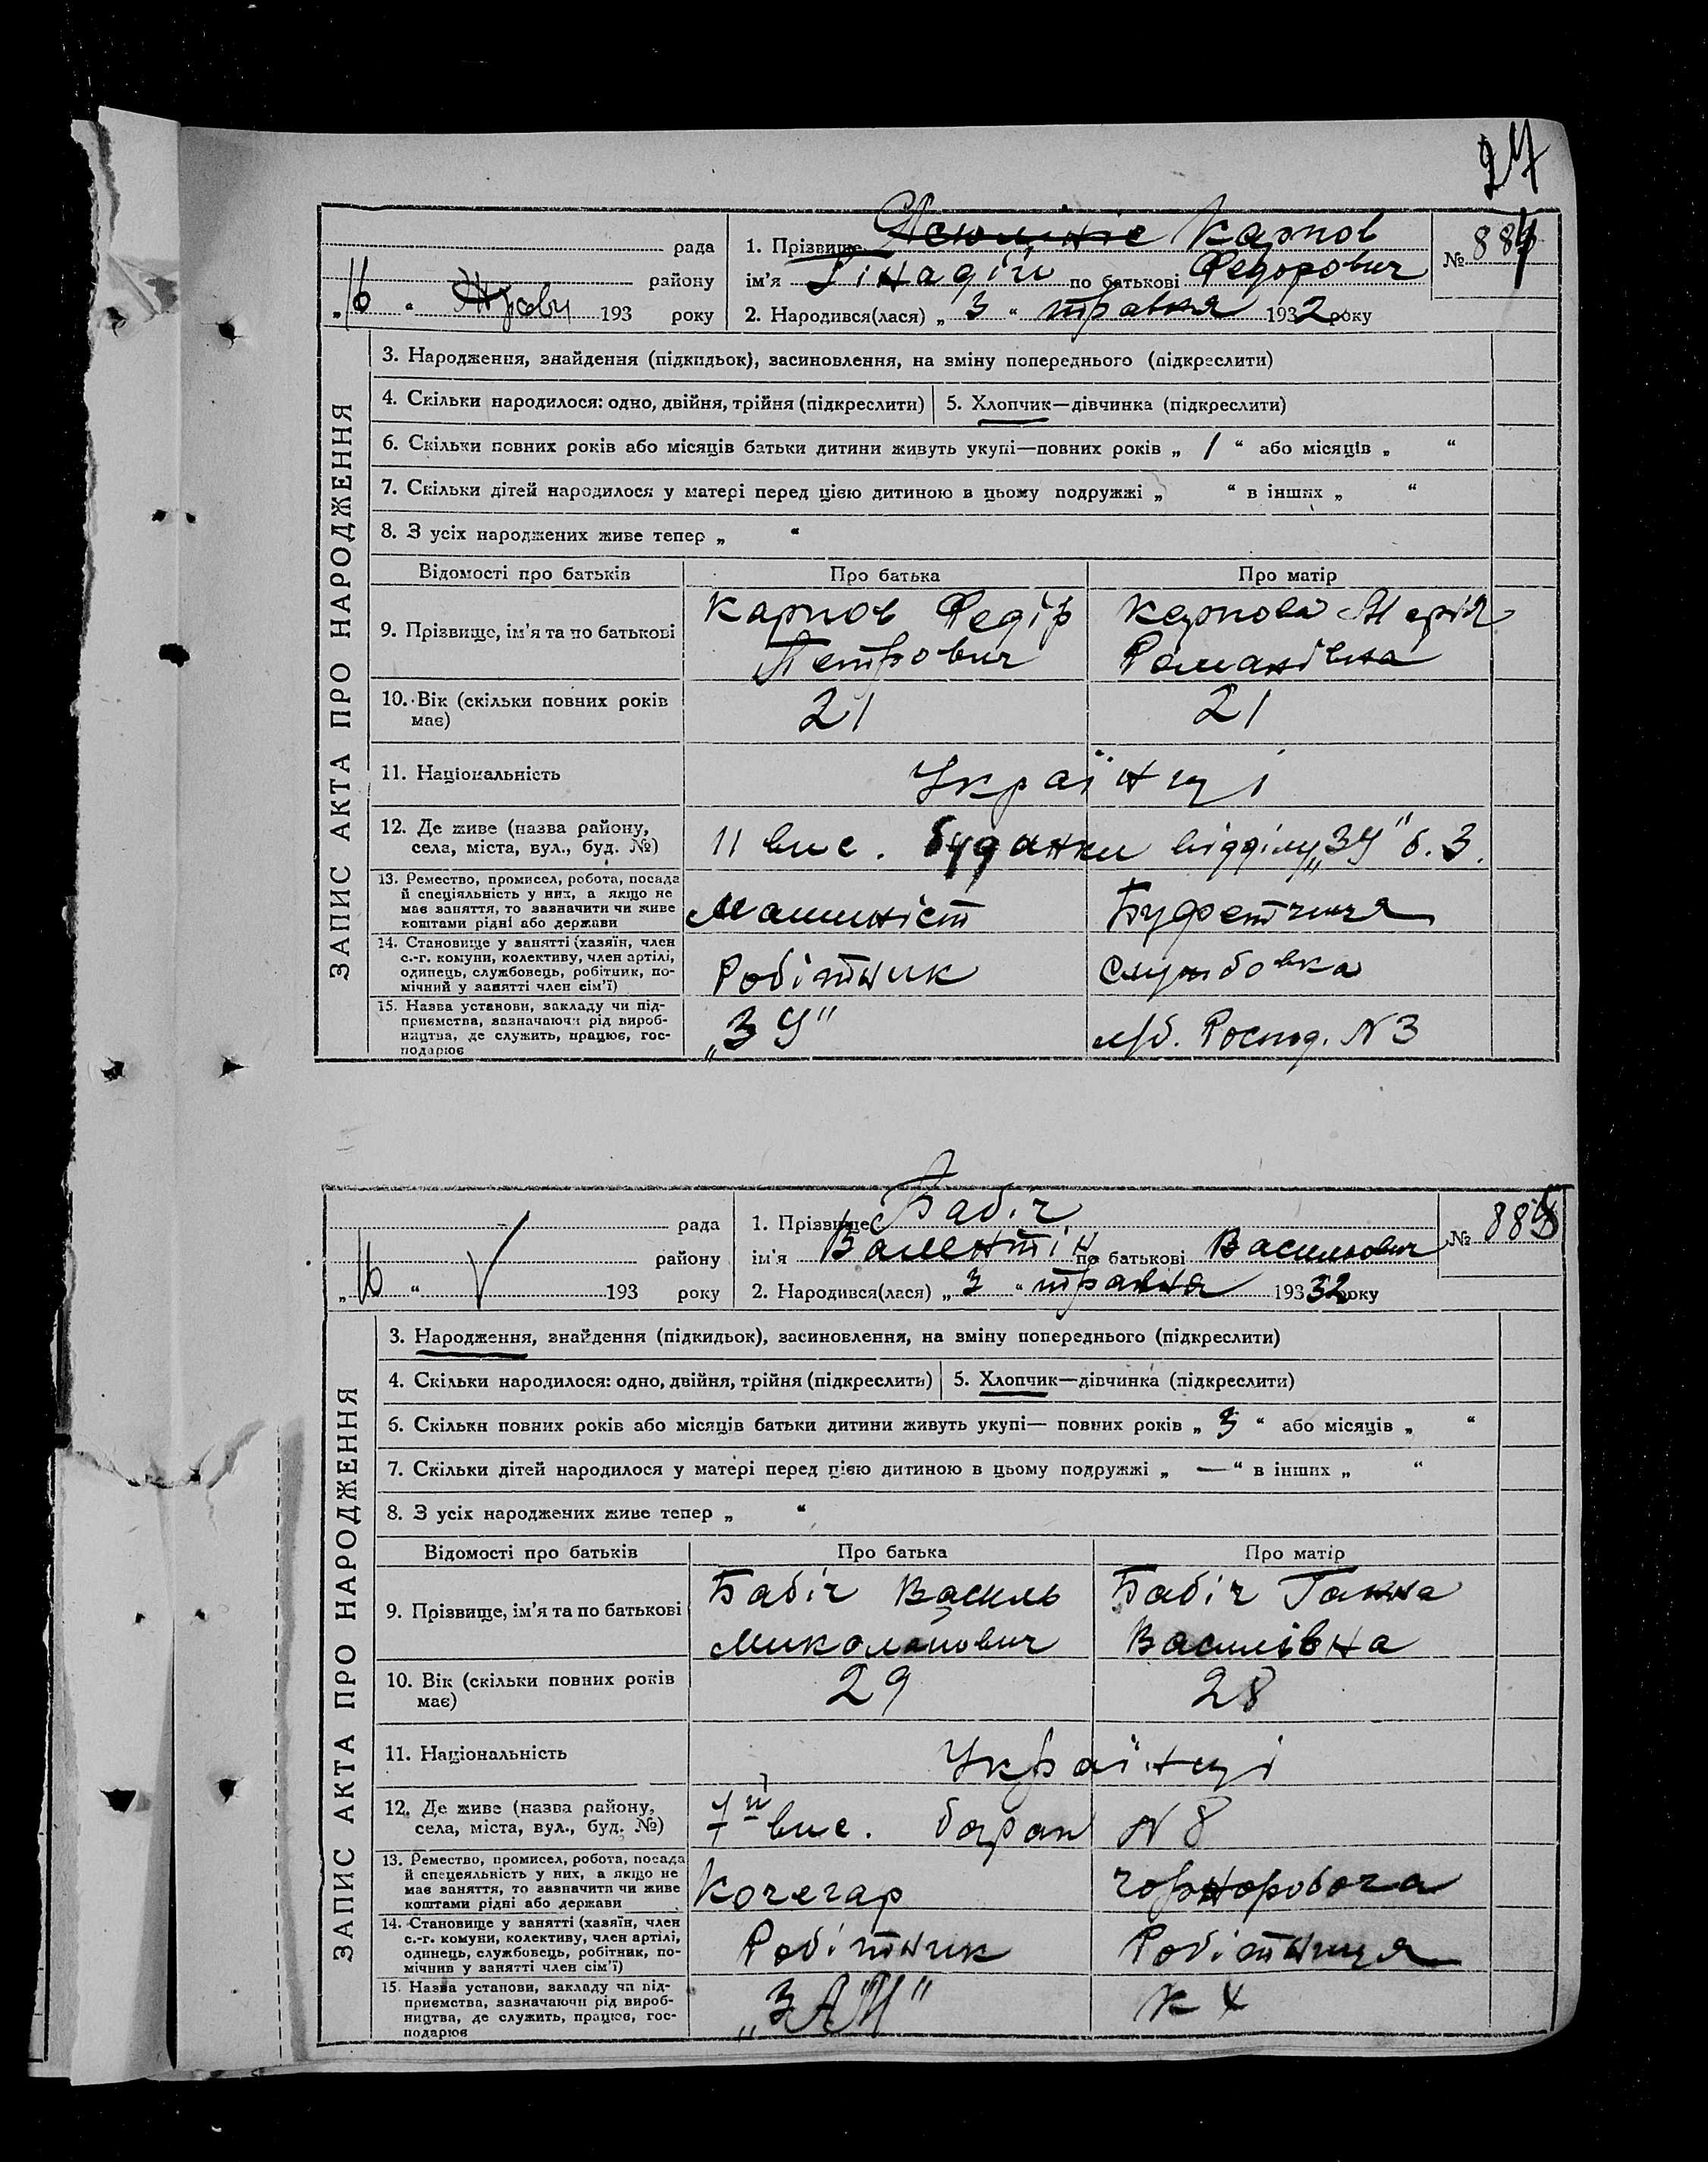 27
рада
району
„16“ 193 року
1. Прізвище Карпов
ім'я Гінадій по батькові Федорович
2. Народився(лася) „3“ травня 1932 року
№ 884
ЗАПИС АКТА ПРО НАРОДЖЕННЯ
3. Народження, знайдення (підкидьок), засиновлення, на зміну попереднього (підкреслити)
4. Скільки народилося: одно, двійня, трійня (підкреслити) 5. Хлопчик—дівчинка (підкреслити)
6. Скільки повних років або місяців батьки дитини живуть укупі—повних років „1“ або місяців „ “
7. Скільки дітей народилося у матері перед цією дитиною в цьому подружжі „ “ в інших „ “
8. З усіх народжених живе тепер „ “
Відомості про батьків Про батька Про матір
9. Прізвище, ім'я та по батькові
Карпов Федір
Петрович
Карпова Марія
Романівна
10. Вік (скільки повних років
має)
21 21
11. Національність
Українці
12. Де живе (назва району,
села, міста, вул., буд. №)
11 вис. будинки відділу „ЗУ“ б. 3.
13. Ремество, промисел, робота, посада
й спеціяльність у них, а якщо не
має заняття, то зазначити чи живе
коштами рідні або держави
Машиніст
Буфетчиця
14. Становище у занятті (хазяїн, член
с.-г. комуни, колективу, член артілі,
одинець, службовець, робітник, по-
мічний у занятті член сім'ї)
Робітник
Службовка
15. Назва установи, закладу чи під-
приємства, зазначаючи рід вироб-
ництва, де служить, працює, гос-
подарює
„ЗУ“
Роспод. N 3
рада
району
„16“ 193 року
1. Прізвище Бабіч
ім'я Валентін по батькові Васильович
2. Народився(лася) „3“ травня 193 32 року
№ 885
ЗАПИС АКТА ПРО НАРОДЖЕННЯ
3. Народження, знайдення (підкидьок), засиновлення, на зміну попереднього (підкреслити)
4. Скільки народилося: одно, двійня, трійня (підкреслить) 5. Хлопчик—дівчинка (підкреслити)
6. Скількн повних років або місяців батьки дитини живуть укупі— повних років „3“ або місяців „ “
7. Скільки дітей народилося у матері перед цією дитиною в цьому подружжі „—“ в інших „ “
8. З усіх народжених живе тепер „ “
Відомості про батьків Про батька Про матір
9. Прізвище, ім'я та по батькові
Бабіч Василь
Миколайович
Бабіч Ганна
Василівна
10. Вік (скільки повних років
має)
29 28
11. Національність
Українці
12. Де живе (назва району,
села, міста, вул., буд. №)
вис. барак N 8
13. Ремество, промисел, робота, посада
й спецеяльність у них, а якщо не
має заняття, то зазначити чи живе
коштами рідні або держави
Кочегар
чорноробоча
14. Становище у занятті (хазяїн, член
с.-г. комуни, колективу, член артілі,
одинець, службовець, робітник, по-
мічнив у занятті член сім'ї)
Робітник
Робітниця
15. Назва установи, закладу чи під-
приємства, зазначаючи рід вироб-
ництва, де служить, працює, гос-
подарює